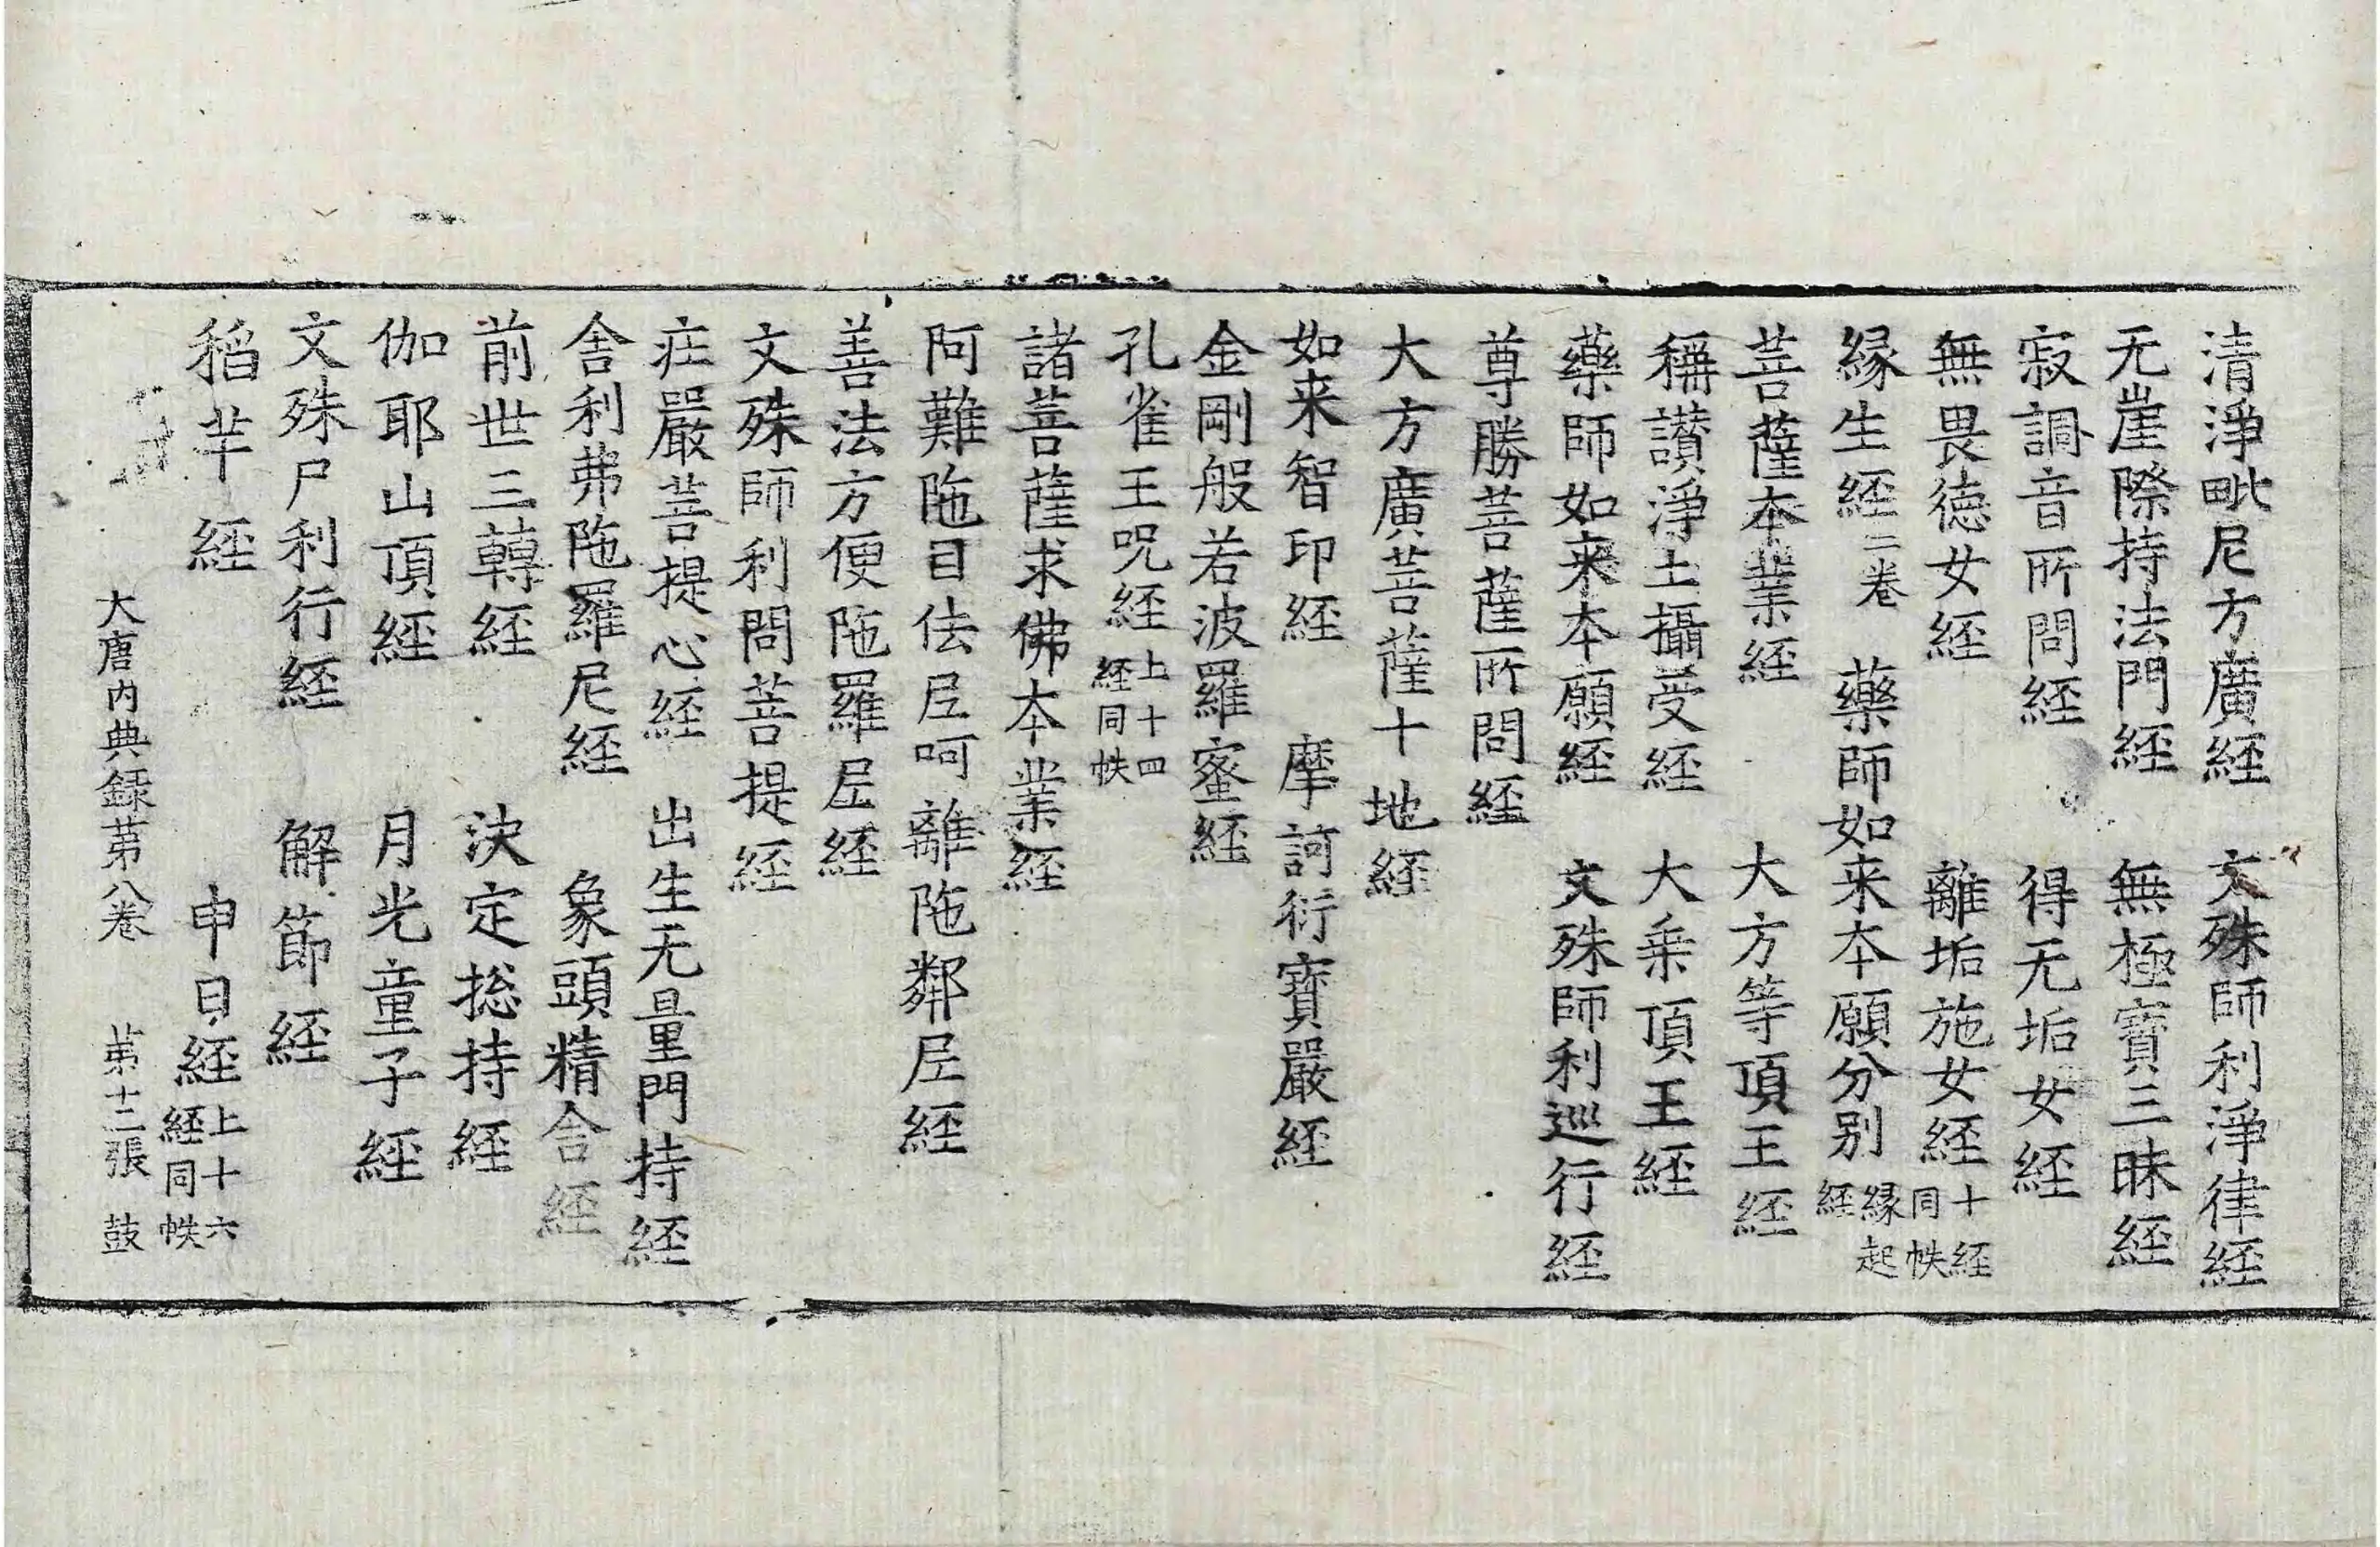 清淨毗尼方廣経　文殊師利淨律経
无崖際持法門経　無極寶三昧経
寂調音所問経　得无垢女経
無畏徳女経　離垢施女経十経同帙
縁生経二卷　藥師如来本願分別縁起経
菩薩本業経　大方等頂王経
稱讃淨土攝受経　大乗頂王経
藥師如来本願経　文殊師利巡行経
尊勝菩薩所問経
大方廣菩薩十地経
如来智印経　摩訶衍寶嚴経
金剛般若波羅蜜経
孔雀王呪経上十四経同帙
諸菩薩求佛本業経
阿難陁目佉𡰱呵離陁鄰𡰱経
善法方便陁羅𡰱経
文殊師利問菩提経
庄嚴菩提心経　出生无量門持経
舎利弗陁羅尼経　象頭精舎経
前世三轉経　決定捴持経
伽耶山頂経　月光童子経
文殊尸利行経　解節経
稻芉経　申日経上十六経同帙
大唐内典録苐八卷　苐十二張　鼓